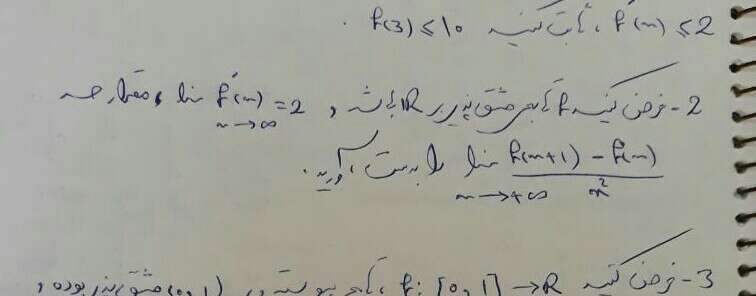 f'(x) ≤ 2 ، ثابت کنید f(3) ≤ 10 .
2- فرض کنید f تابعی مشتق پذیر بر R باشد و lim f'(x) = 2 x→∞ ، مقدار حد
lim f(x+1) - f(x) / x² x→+∞ را بدست آورید.
3- فرض کنید f: [0,1] → R تابعی پیوسته و در (0,1) مشتق پذیر بوده و